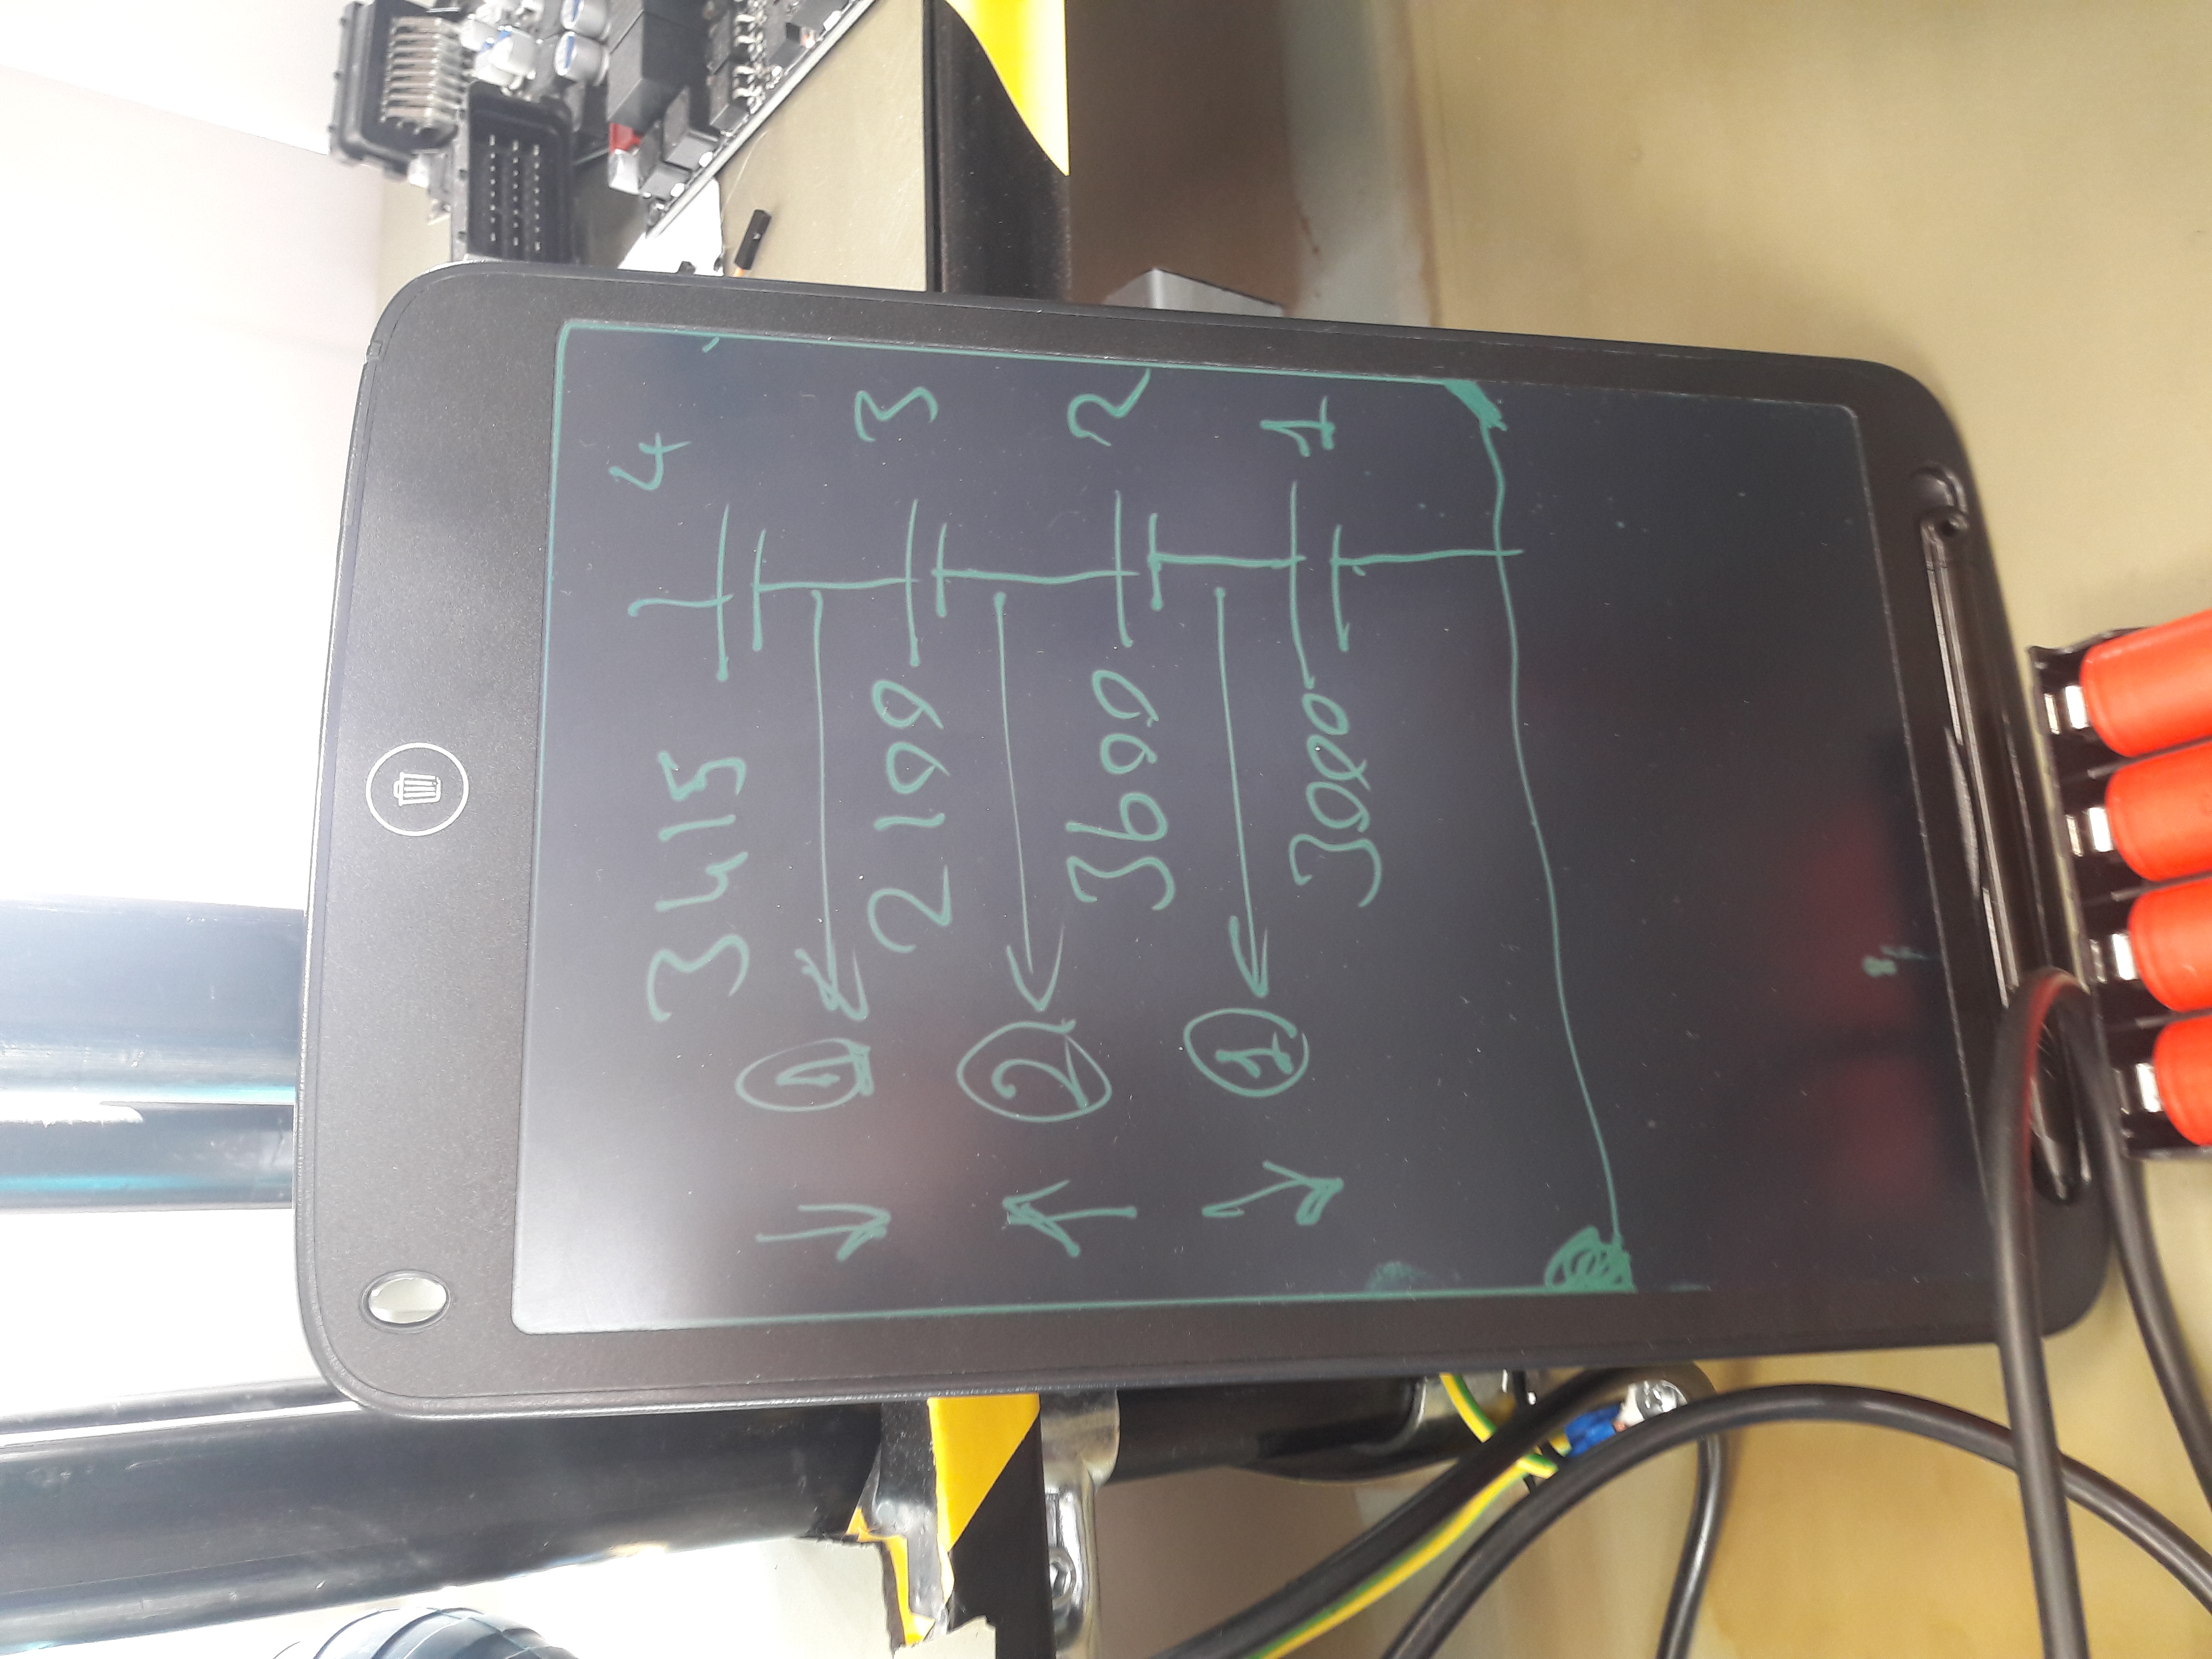 3415 4
1
2100 3
2
3600 2
1
3000 1